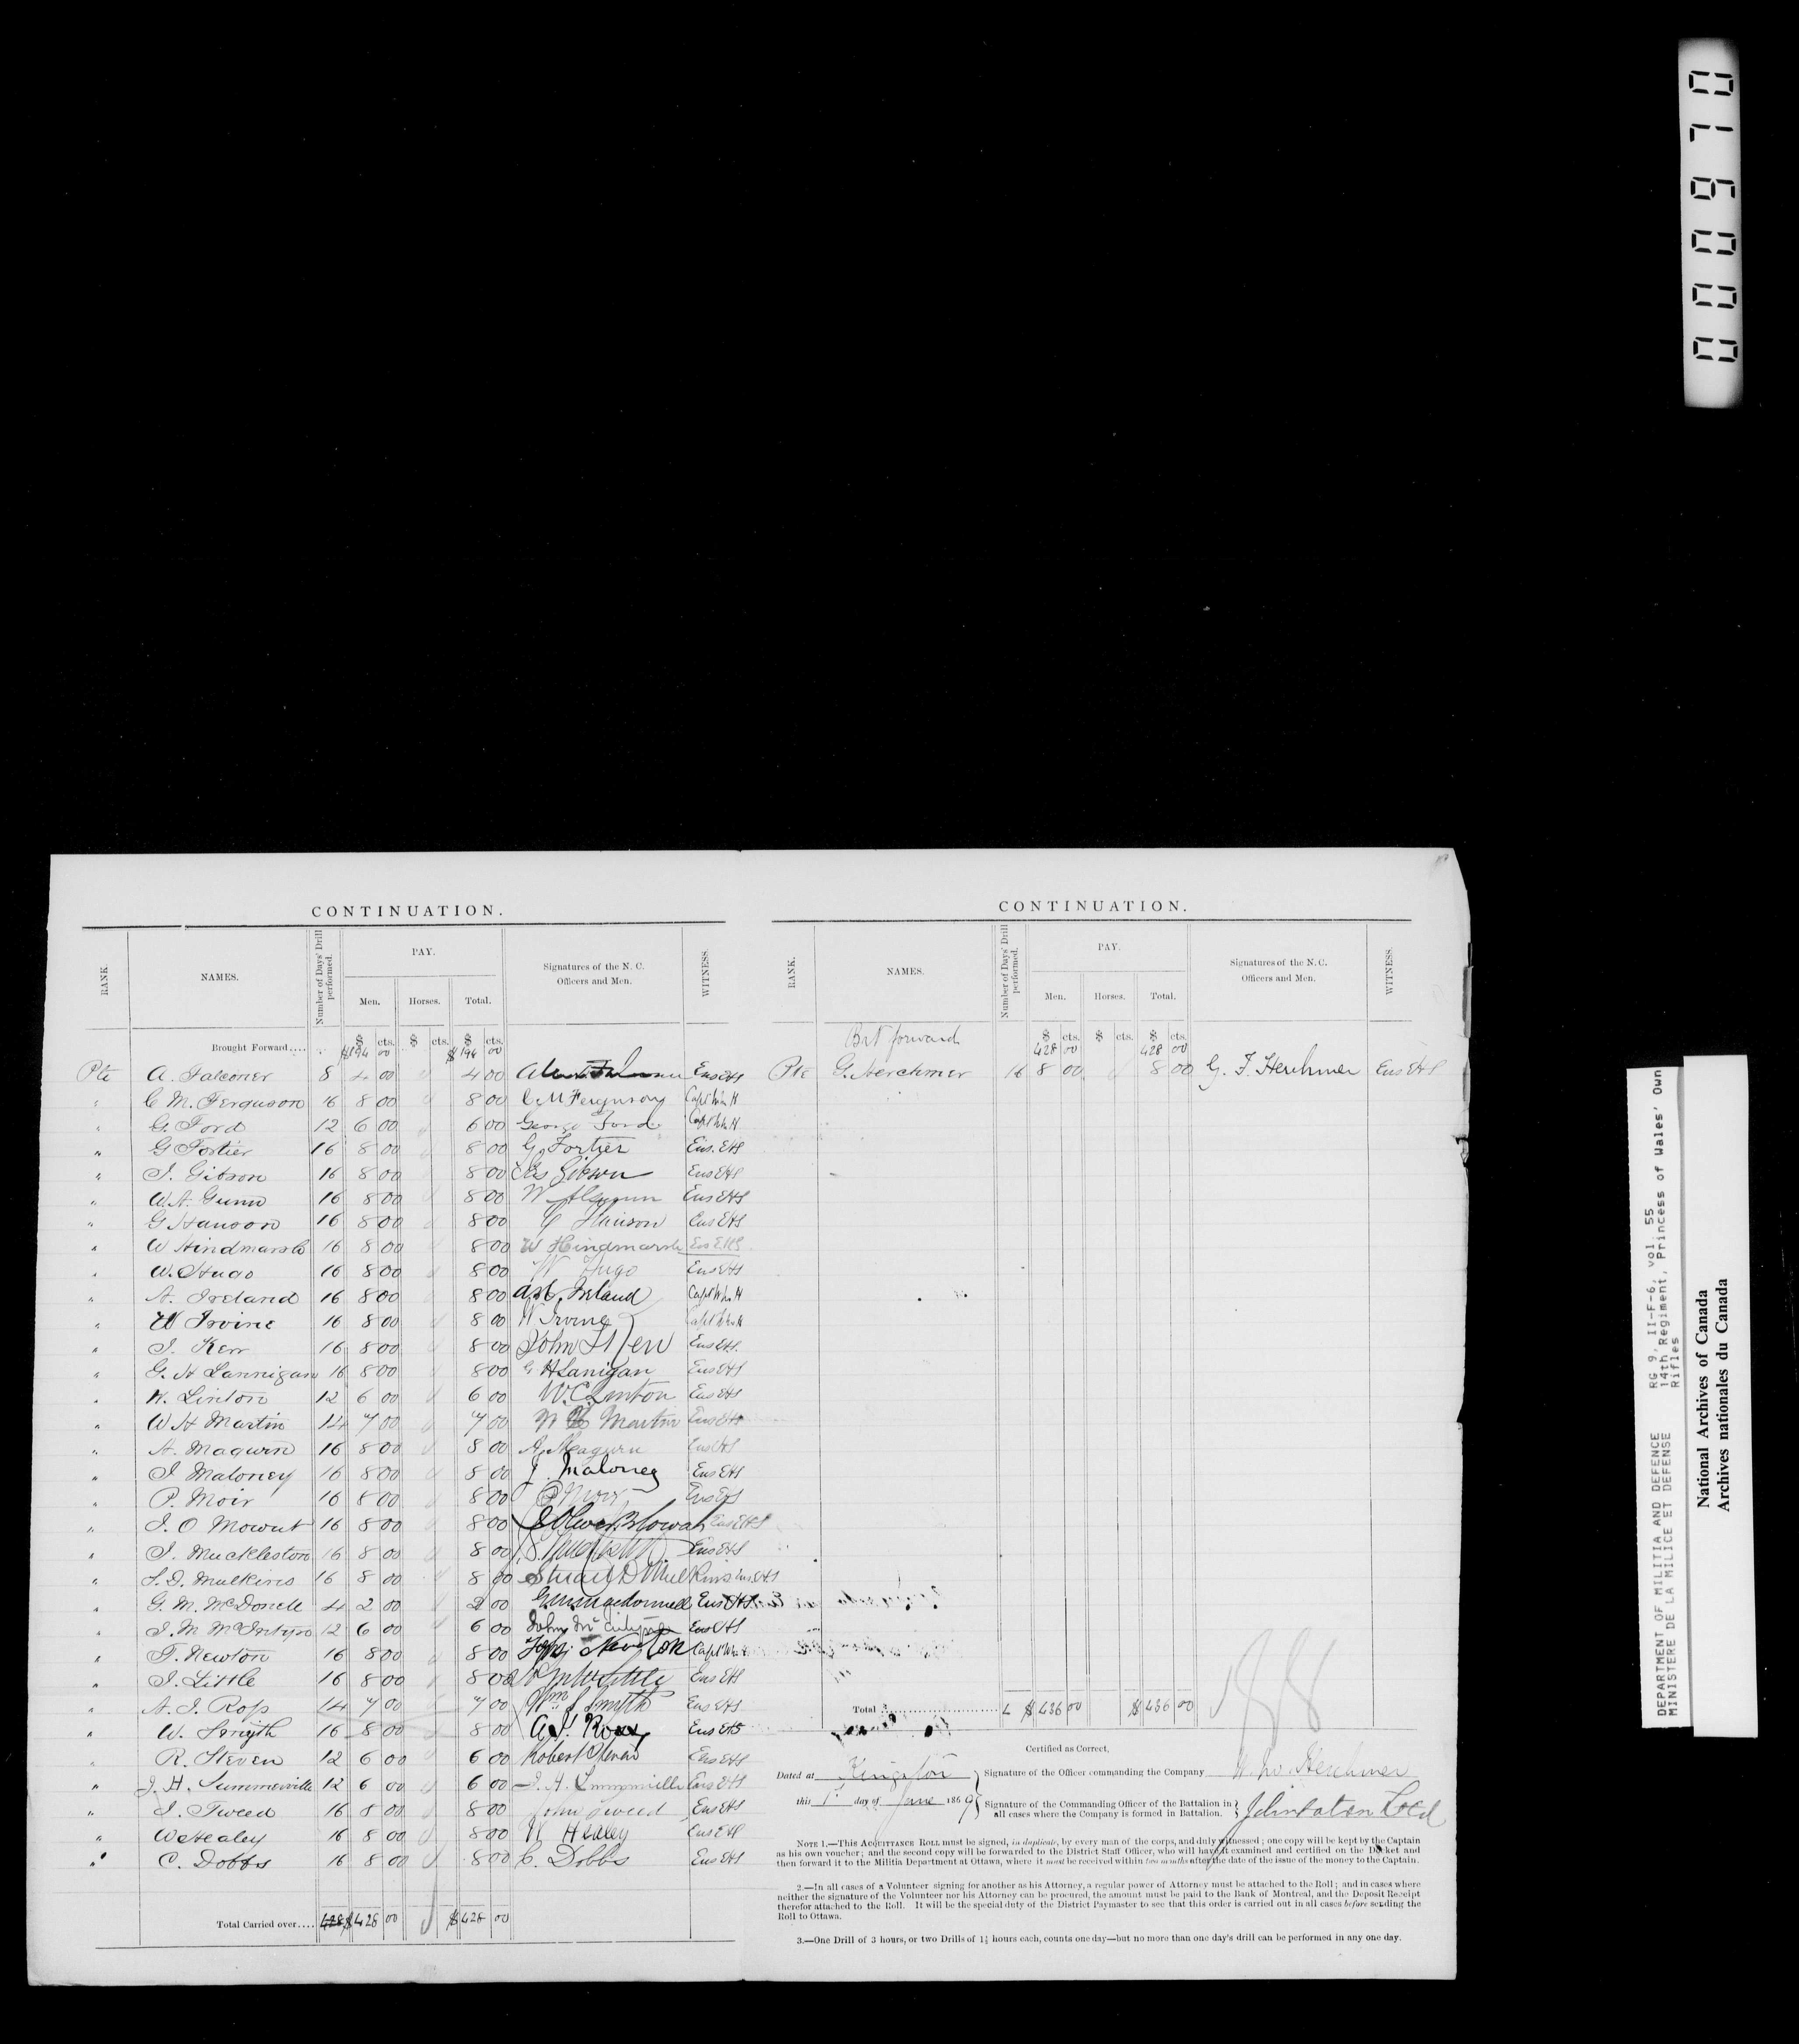 CONTINUATION.
RANK. NAMES. Number of Days' Drill performed. PAY. Signatures of the N. C. Officers and Men. WITNESS.
Men. Horses. Total.
$ cts. $ cts. $ cts.
Brought Forward.... $194 00 $194 00
Pte A. Falconer 8 4 00 4 00 Ens EHS
" C. M. Ferguson 16 8 00 8 00 C. M Ferguson
" G. Ford 12 6 00 6 00 George Ford
" G Fortier 16 8 00 8 00 G. Fortier Ens. EHS
" J. Gibson 16 8 00 8 00 Gibson Ens EHS
" W. A. Gunn 16 8 00 8 00 W A Gunn Ens EHS
" G Hanson 16 8 00 8 00 G Hanson Ens EHS
" W Hindmarsh 16 8 00 8 00 W Hindmarsh Ens EHS
" W. Hugo 16 8 00 8 00 W Hugo Ens EHS
" A. Ireland 16 8 00 8 00 Ireland
" W Irvine 16 8 00 8 00 W Irving
" J. Kerr 16 8 00 8 00 John Kerr Ens EHS.
" G. H Lannigan 16 8 00 8 00 G H Lanigan Ens EHS
" W. Linton 12 6 00 6 00 W. C. Linton Ens EHS
" W H Martin 14 7 00 7 00 W H Martin Ens EHS
" A. Magurn 16 8 00 8 00 A. Magurn Ens EHS
" J Maloney 16 8 00 8 00 J. Maloney Ens EHS
" P. Moir 16 8 00 8 00 P Moir Ens EHS
" J. O Mowat 16 8 00 8 00 J Oliver Mowat Ens EHS
" J. Muckleston 16 8 00 8 00 Ens EHS
" S. D. Mulkins 16 8 00 8 00 Stuart D Mulkins Ens EHS
" G. M. McDonell 4 2 00 2 00 Ens EHS
" J. M McIntyre 12 6 00 6 00 John McIntyre Ens EHS
" T. Newton 16 8 00 8 00 Newton
" J. Little 16 8 00 8 00 Little Ens EHS
" A. J. Ross 14 7 00 7 00 Wm S Smyth Ens EHS
" W. Smyth 16 8 00 8 00 A. J. Ross Ens EHS
" R. Steven 12 6 00 6 00 Robert Steven Ens EHS
" J. H. Summerville 12 6 00 6 00 J. H. Summerville Ens EHS
" J. Tweed 16 8 00 8 00 John Tweed Ens EHS
" W Healey 16 8 00 8 00 W Healey Ens EHS
" C. Dobbs 16 8 00 8 00 C. Dobbs Ens EHS
Total Carried over.... 428 $428 00 $428 00
CONTINUATION.
RANK. NAMES. Number of Days' Drill performed. PAY. Signatures of the N. C. Officers and Men. WITNESS.
Men. Horses. Total.
$ cts. $ cts. $ cts.
Brt forward 428 00 428 00
Pte G. Herchmer 16 8 00 8 00 G. F. Herchmer Ens EHS
Total $ 436 00 $436 00
Certified as Correct,
Dated at Kingston
this 1st day of June 1869
Signature of the Officer commanding the Company Herchmer
Signature of the Commanding Officer of the Battalion in
all cases where the Company is formed in Battalion. John Paton
NOTE 1.—This ACQUITTANCE ROLL must be signed, in duplicate, by every man of the corps, and duly witnessed; one copy will be kept by the Captain
as his own voucher; and the second copy will be forwarded to the District Staff Officer, who will have it examined and certified on the Docket and
then forward it to the Militia Department at Ottawa, where it must be received within two months after the date of the issue of the money to the Captain.
2.—In all cases of a Volunteer signing for another as his Attorney, a regular power of Attorney must be attached to the Roll; and in cases where
neither the signature of the Volunteer nor his Attorney can be procured, the amount must be paid to the Bank of Montreal, and the Deposit Receipt
therefor attached to the Roll. It will be the special duty of the District Paymaster to see that this order is carried out in all cases before sending the
Roll to Ottawa.
3.—One Drill of 3 hours, or two Drills of 1½ hours each, counts one day—but no more than one day's drill can be performed in any one day.
DEPARTMENT OF MILITIA AND DEFENCE RG 9, II-F-6, vol. 55
MINISTERE DE LA MILICE ET DEFENSE 14th Regiment, Princess of Wales' Own
Rifles
National Archives of Canada
Archives nationales du Canada
0009710